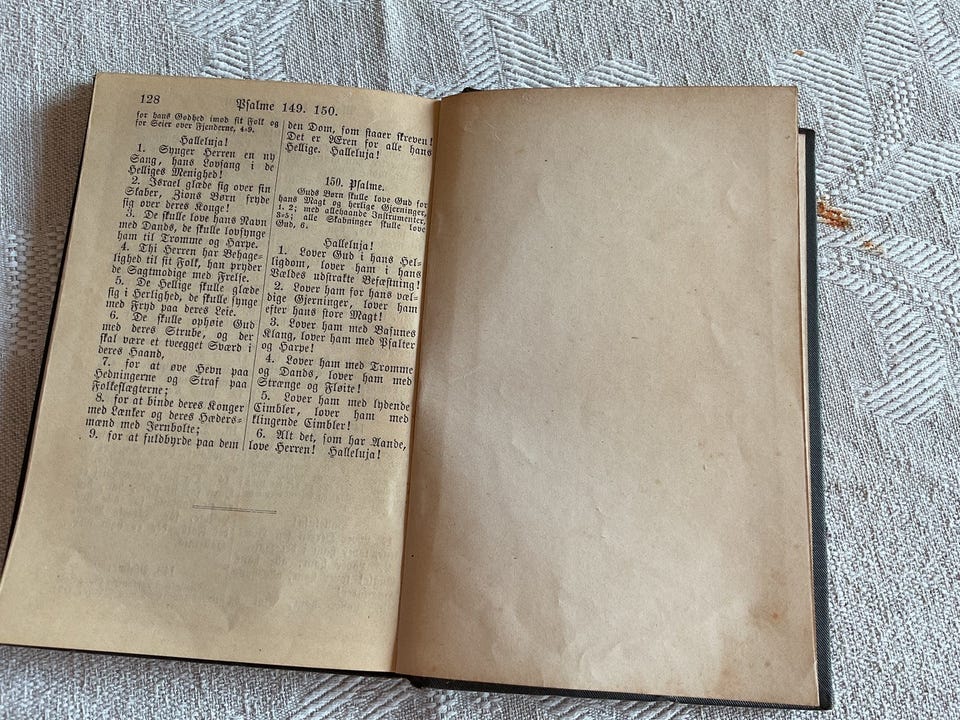 128
Psalme 149. 150.
for hans Godhed imod sit Folk og
for Seier over Fjenderne, 4-9.
Halleluja!
1. Synger Herren en ny
Sang, hans Lovsang i de
Helliges Menighed!
2. Israel glæde sig over sin
Skaber, Zions Børn fryde
sig over deres Konge!
3. De skulle love hans Navn
med Dands, de skulle lovsynge
ham til Tromme og Harpe.
4. Thi Herren har Behage-
lighed til sit Folk, han pryder
de Sagtmodige med Frelse.
5. De Hellige skulle glæde
sig i Herlighed, de skulle synge
med Fryd paa deres Leie.
6. De skulle ophøie Gud
med deres Strube, og der
skal være et tveegget Sværd i
deres Haand,
7. for at øve Hevn paa
Hedningerne og Straf paa
Folkeslægterne;
8. for at binde deres Konger
med Lænker og deres Hæders-
mænd med Jernbolte;
9. for at fuldbyrde paa dem
den Dom, som staaer skreven!
Det er Æren for alle hans
Hellige. Halleluja!
150. Psalme.
Guds Børn skulle love Gud for
hans Magt og herlige Gjerninger,
1. 2; med allehaande Instrumenter,
3-5; alle Skabninger skulle love
Gud, 6.
Halleluja!
1. Lover Gud i hans Hel-
ligdom, lover ham i hans
Vældes udstrakte Befæstning!
2. Lover ham for hans væl-
dige Gjerninger, lover ham
efter hans store Magt!
3. Lover ham med Basunes
Klang, lover ham med Psalter
og Harpe!
4. Lover ham med Tromme
og Dands, lover ham med
Strænge og Fløite!
5. Lover ham med lydende
Cimbler, lover ham med
klingende Cimbler!
6. Alt det, som har Aande,
love Herren! Halleluja!